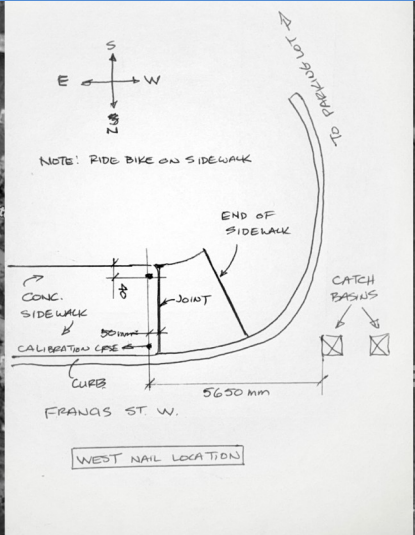 S
E W
N
TO PARKING LOT
NOTE: RIDE BIKE ON SIDEWALK
END OF
SIDEWALK
CONC.
SIDEWALK
40
JOINT
CATCH
BASINS
50mm
CALIBRATION CRSE
CURB
5650 mm
FRANCIS ST. W.
WEST NAIL LOCATION